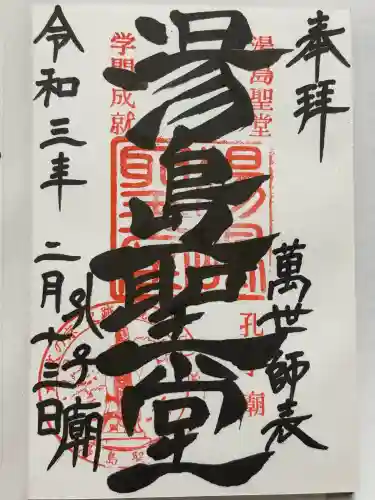 奉拝
萬世師表
湯島聖堂
孔子廟
湯島聖堂
学問成就
令和三年 二月十三日
孔子廟